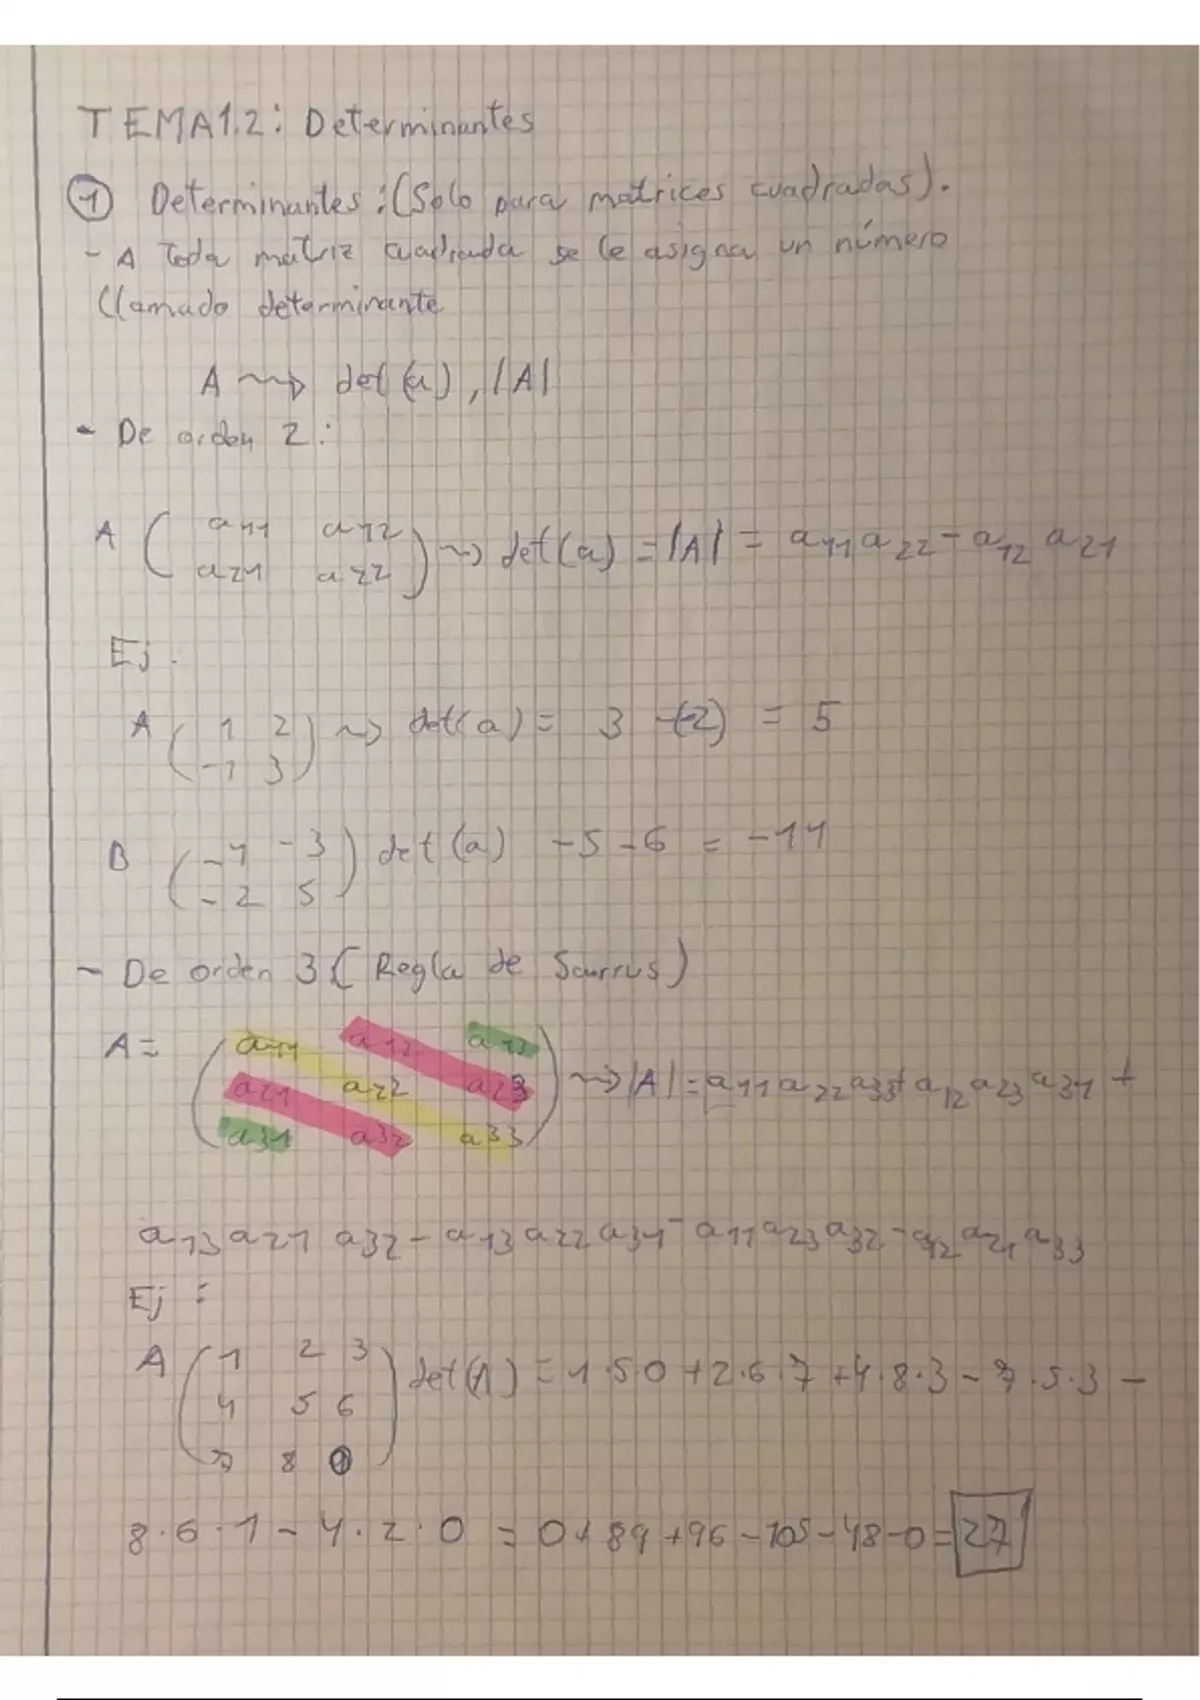 TEMA1.2: Determinantes
1 Determinantes: (Solo para matrices cuadradas).
- A Toda matriz cuadrada se le asigna un número
llamado determinante
A ⇝ det(a), |A|
- De orden 2:
A ( a11 a12
a21 a22 ) ⇝ det(a) = |A| = a11 a22 - a12 a21
Ej.
A ( 1 2
-1 3 ) ⇝ det(a) = 3 -(-2) = 5
B ( -1 -3
-2 5 ) det(a) -5 -6 = -11
- De orden 3 ( Regla de Sarrus)
A = ( a11 a12 a13
a21 a22 a23
a31 a32 a33 ) ⇝ |A| = a11 a22 a33 + a12 a23 a31 +
a13 a21 a32 - a13 a22 a31 - a11 a23 a32 - a12 a21 a33
Ej :
A ( 1 2 3
4 5 6
7 8 0 ) det(A) = 1·5·0 + 2·6·7 + 4·8·3 - 7·5·3 -
8·6·1 - 4·2·0 = 0 + 84 + 96 - 105 - 48 - 0 = 27